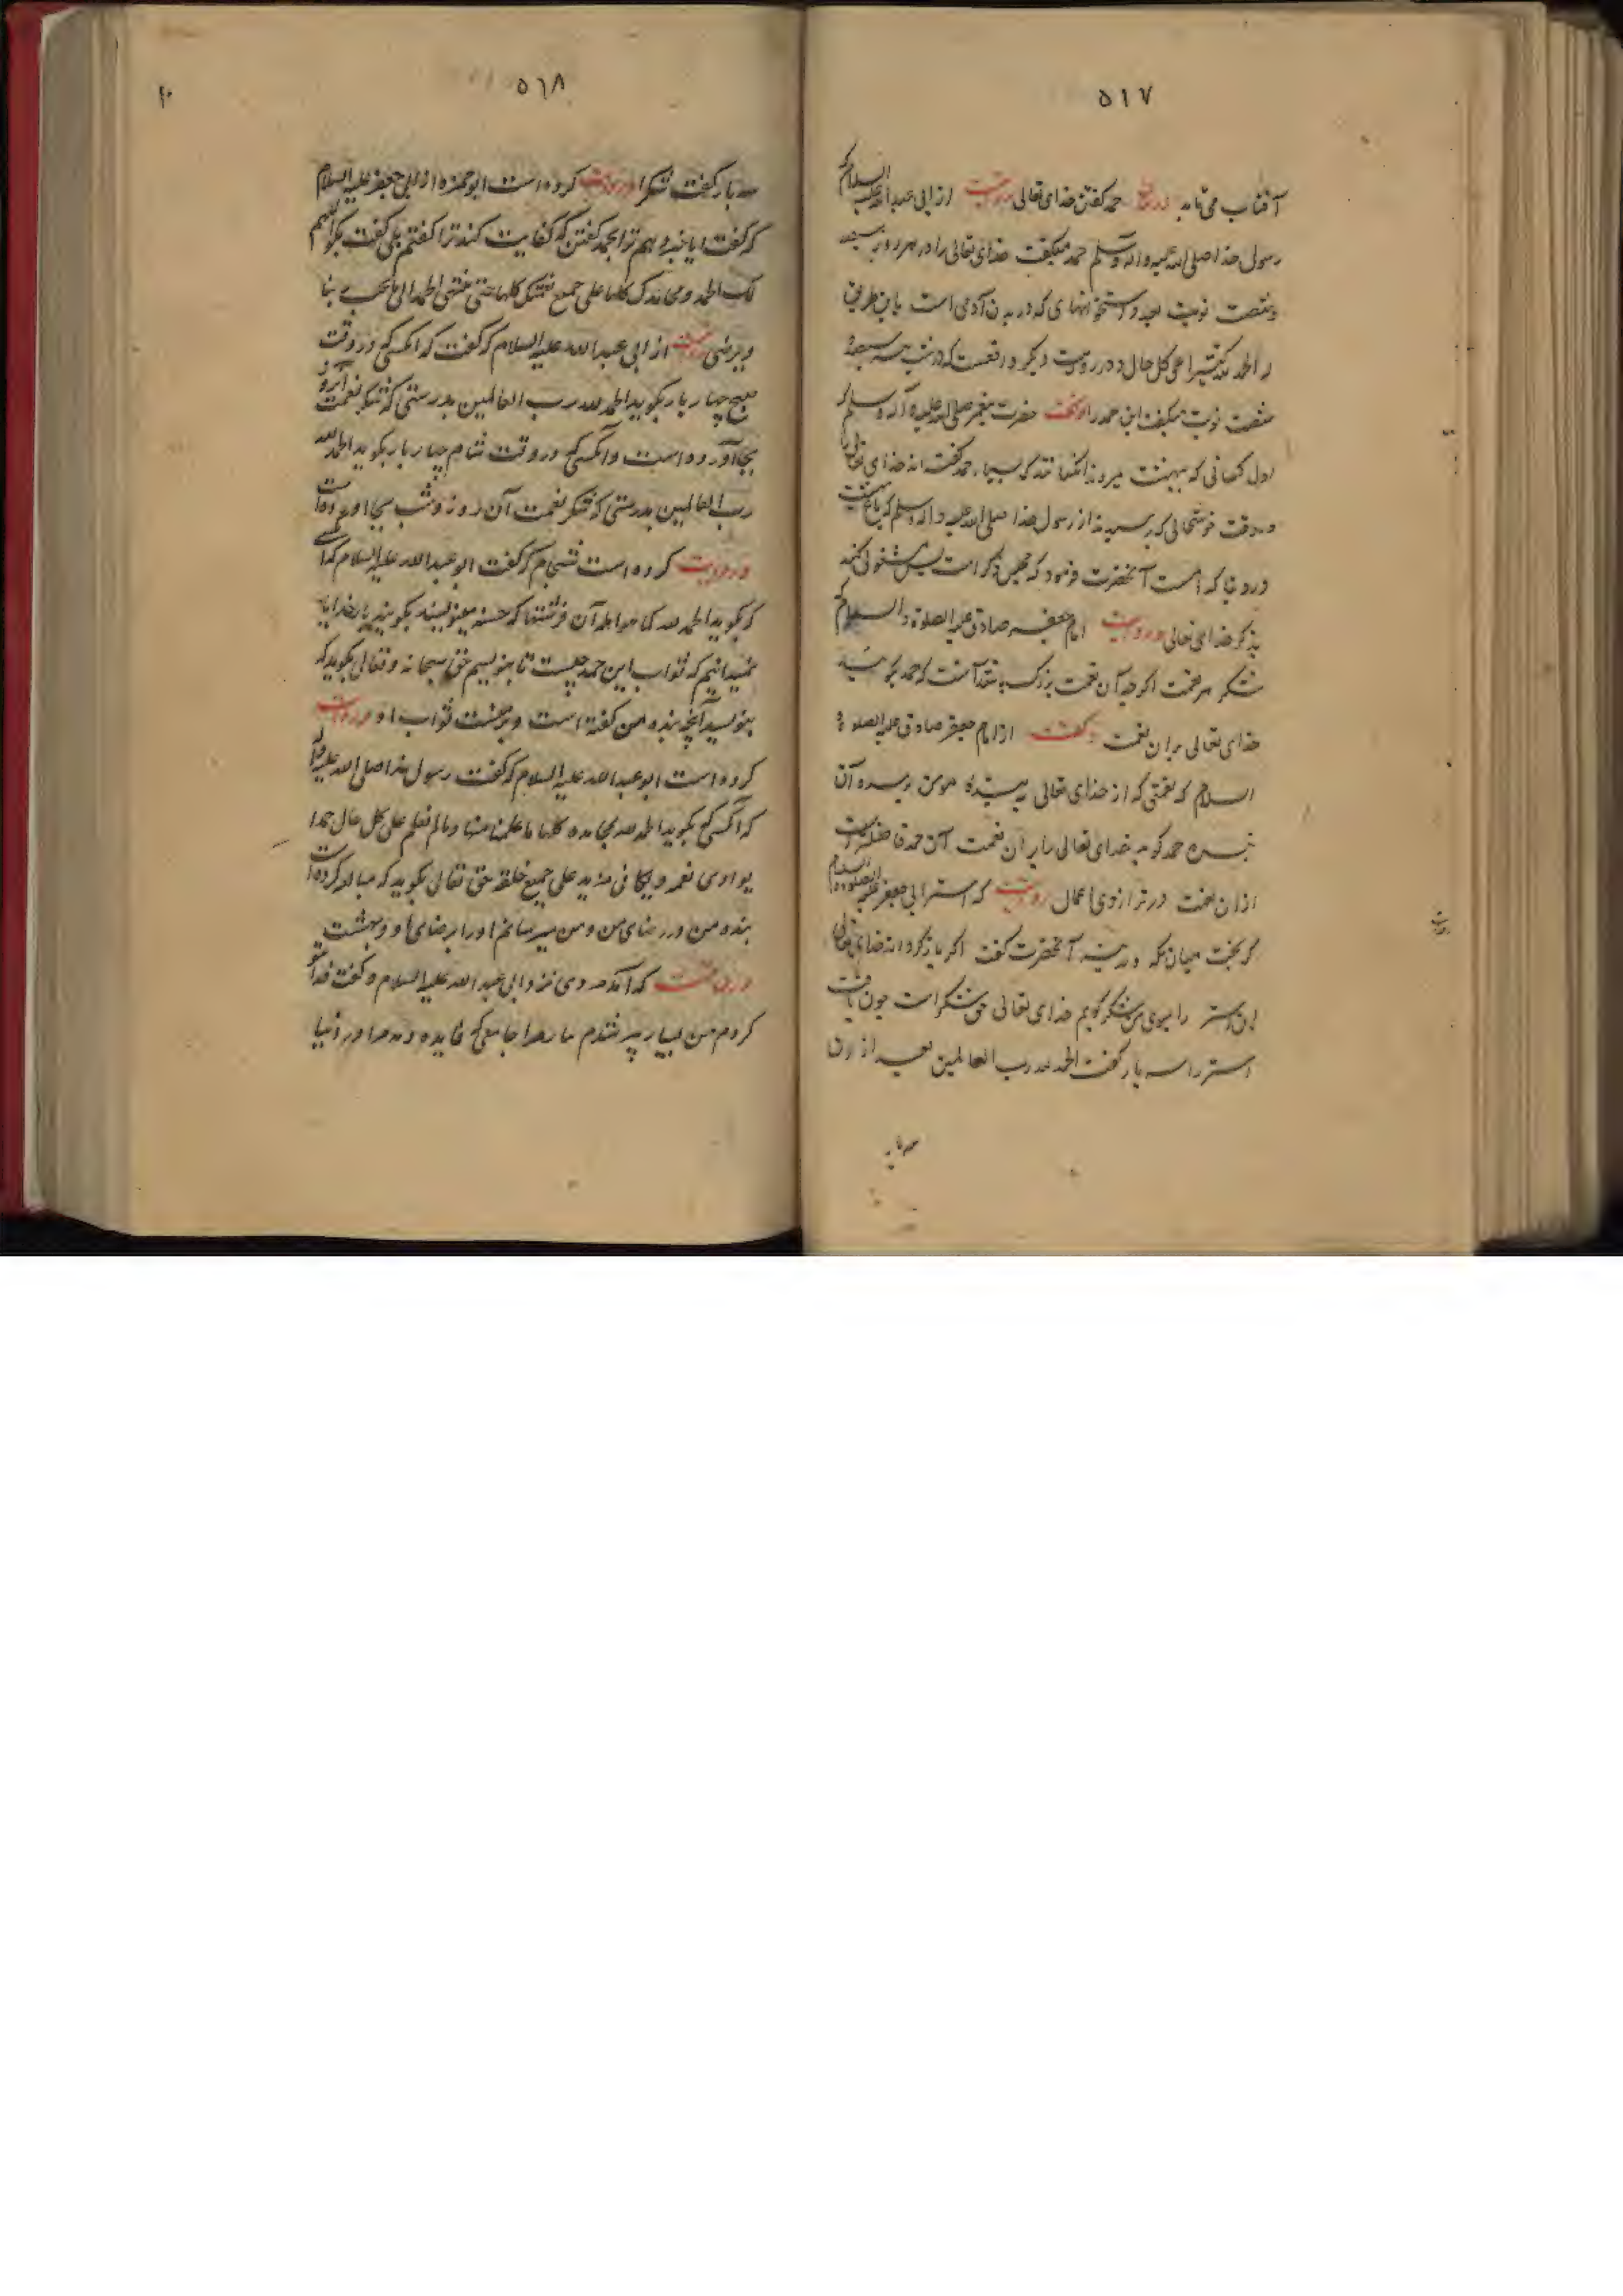 ۵۱۷
آفتاب می تابد در بیان حمد گفتن خدای تعالی روایت از ابی عبدالله علیه السلام که
رسول خدا صلی الله علیه و اله و سلم حمد میگفت خدای تعالی را در هر روز سیصد
و شصت نوبت بعدد استخوانهای که در بدن آدمی است باین طریق
الحمد لله کثیرا علی کل حال و در روایت دیگر واقعست که در شب سیصد
شصت نوبت میگفت این حمد را و گفت حضرت پیغمبر صلی الله علیه و آله و سلم که
اول کسانی که ببهشت میروند آنکسانند که بسیار حمد گفته اند خدای تعالی را
در وقت خوشحالی که پرسیدند از رسول خدا صلی الله علیه و اله و سلم که
کدام است آنحضرت فرمود که مجلس ذکر است پس مشغولی کنید
بذکر خدای تعالی و روایت امام جعفر صادق علیه الصلوة و السلام که
شکر هر نعمت اگرچه آن نعمت بزرگ باشد آنست که حمد گوئید
خدای تعالی بر آن نعمت گفت از امام جعفر صادق علیه الصلوة و
السلام که نعمتی که از خدای تعالی به بنده مومن رسد و آن
بنده حمد گوید خدای تعالی را بر آن نعمت آن حمد فاضلتر است
از آن نعمت در ترازوی اعمال روایت که استر ابی جعفر علیه الصلوة و السلام
گریخت میان مکه و مدینه آنحضرت گفت اگر بازگرداند خدای تعالی
این استر را بسوی من شکر گویم خدای تعالی حق شکر است چون یافت
استر را سه بار گفت الحمد لله رب العالمین بعد از آن
سه بار
۵۱۸
سه بار گفت شکرا و روایت کرده است ابو حمزه از ابی جعفر علیه السلام
که گفت ایا خبر دهم ترا بحمد گفتن که کفایت کند ترا گفتم بلی گفت بگو اللهم
لک الحمد و محامدک کلها علی جمیع نعمتک کلها حتی ینتهی الحمد الی ما تحب ربنا
و یرضی روایت از ابی عبدالله علیه السلام که گفت که آنکسی که در وقت
صبح چهار بار بگوید الحمد لله رب العالمین بدرستی که شکر نعمت آن روز
بجا آورده است و آنکسی که در وقت شام چهار بار بگوید الحمد لله
رب العالمین بدرستی که شکر نعمت آن روز و شب بجا اورده است
و روایت کرده است که گفت ابو عبدالله علیه السلام که آن کسی
که بگوید الحمد لله کما هو اهله آن فرشتها که حسنه مینویسند بگویند بار خدایا
نمیدانیم که ثواب این حمد چیست تا بنویسیم حق سبحانه و تعالی بگوید که
بنویسید آنچه بنده من گفته است و بر منست ثواب او و روایت
کرده است ابو عبدالله علیه السلام که گفت رسول خدا صلی الله علیه و آله
که آنکسی که بگوید الحمد لله بمحامده کلها ما علمنا منها و ما لم نعلم علی کل حال حمدا
یوازی نعمه و یکافی مزیده علی جمیع خلقه حق تعالی بگوید که مبالغه کرده است
بنده من در رضای من و من میرسانم او را برضای او در بهشت
و روایت که آمد مردی نزد ابی عبدالله علیه السلام و گفت فدای تو
کردم من بسیار پیر شدم ما را دعا جامعی که فایده دهد مرا در دنیا